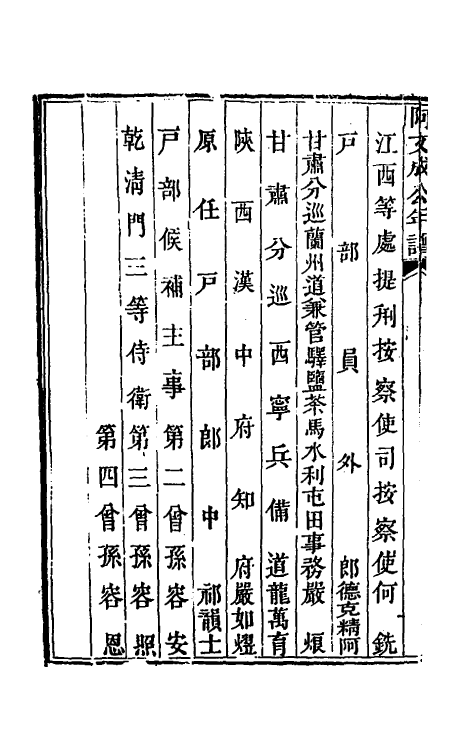 阿文成公年譜
江西等處提刑按察使司按察使何銑
戸部員外郎德克精阿
甘肅分巡蘭州道兼管驛鹽茶馬水利屯田事務嚴烺
甘肅分巡西寧兵備道龍萬育
陝西漢中府知府嚴如熤
原任戸部郎中祁韻士
戸部候補主事第二曾孫容安
乾淸門三等侍衛第三曾孫容照
第四曾孫容恩